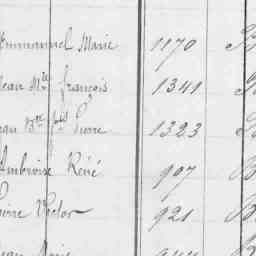 Emmanuel Marie 1170
Jean Mie François 1341
Jean Bte fils Pierre 1323
Ambroise Réné 907
Pierre Victor 921
Marie